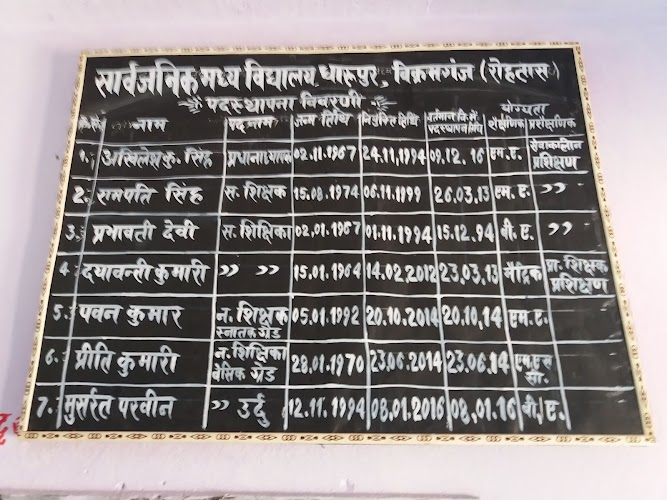 सार्वजनिक मध्य विद्यालय धारुपुर, बिक्रमगंज (रोहतास)
पदस्थापना विवरणी
नाम पदनाम जन्म तिथि नियुक्ति तिथि वर्तमान वि.में पदस्थापन तिथि योग्यता शैक्षणिक प्रशैक्षणिक
1. अखिलेश कु. सिंह प्रधानाध्यापक 02.11.1967 24.11.1994 09.12.16 एम.ए. सेवाकालीन प्रशिक्षण
2. रामपति सिंह स. शिक्षक 15.08.1974 06.11.1999 26.03.13 एम.ए. ,,
3. प्रभावती देवी स. शिक्षिका 02.01.1967 01.11.1994 15.12.94 बी.ए. ,,
4. दयावन्ती कुमारी ,, ,, 15.01.1964 14.02.2012 23.03.13 मैट्रिक प्रा. शिक्षक प्रशिक्षण
5. पवन कुमार न. शिक्षक स्नातक ग्रेड 05.01.1992 20.10.2014 20.10.14 एम.ए.
6. प्रीति कुमारी न. शिक्षिका बेसिक ग्रेड 28.01.1970 23.06.2014 23.06.14 एम.एस सी.
7. मुसर्रत परवीन ,, उर्दु 12.11.1994 08.01.2016 08.01.16 बी.ए.